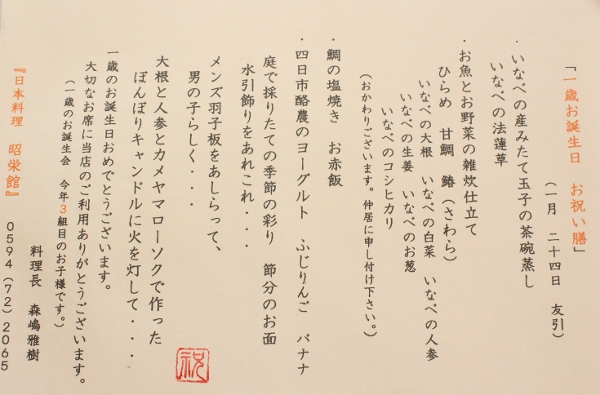 「一歳お誕生日　お祝い膳」
（一月　二十四日　友引）
・いなべの産みたて玉子の茶碗蒸し
いなべの法蓮草
・お魚とお野菜の雑炊仕立て
ひらめ　甘鯛　鰆（さわら）
いなべの大根　いなべの白菜　いなべの人参
いなべの生姜　いなべのお葱
いなべのコシヒカリ
（おかわりございます。仲居に申し付け下さい。）
・鯛の塩焼き　お赤飯
・四日市酪農のヨーグルト　ふじりんご　バナナ
庭で採りたての季節の彩り　節分のお面
水引飾りをあれこれ・・・
メンズ羽子板をあしらって、
男の子らしく・・・
大根と人参とカメヤマローソクで作った
ぼんぼりキャンドルに火を灯して・・・
一歳のお誕生日おめでとうございます。
大切なお席に当店のご利用ありがとうございます。
（一歳のお誕生会　今年３組目のお子様です。）
料理長　森嶋雅樹
『日本料理　昭栄館』
０５９４（７２）２０６５
祝